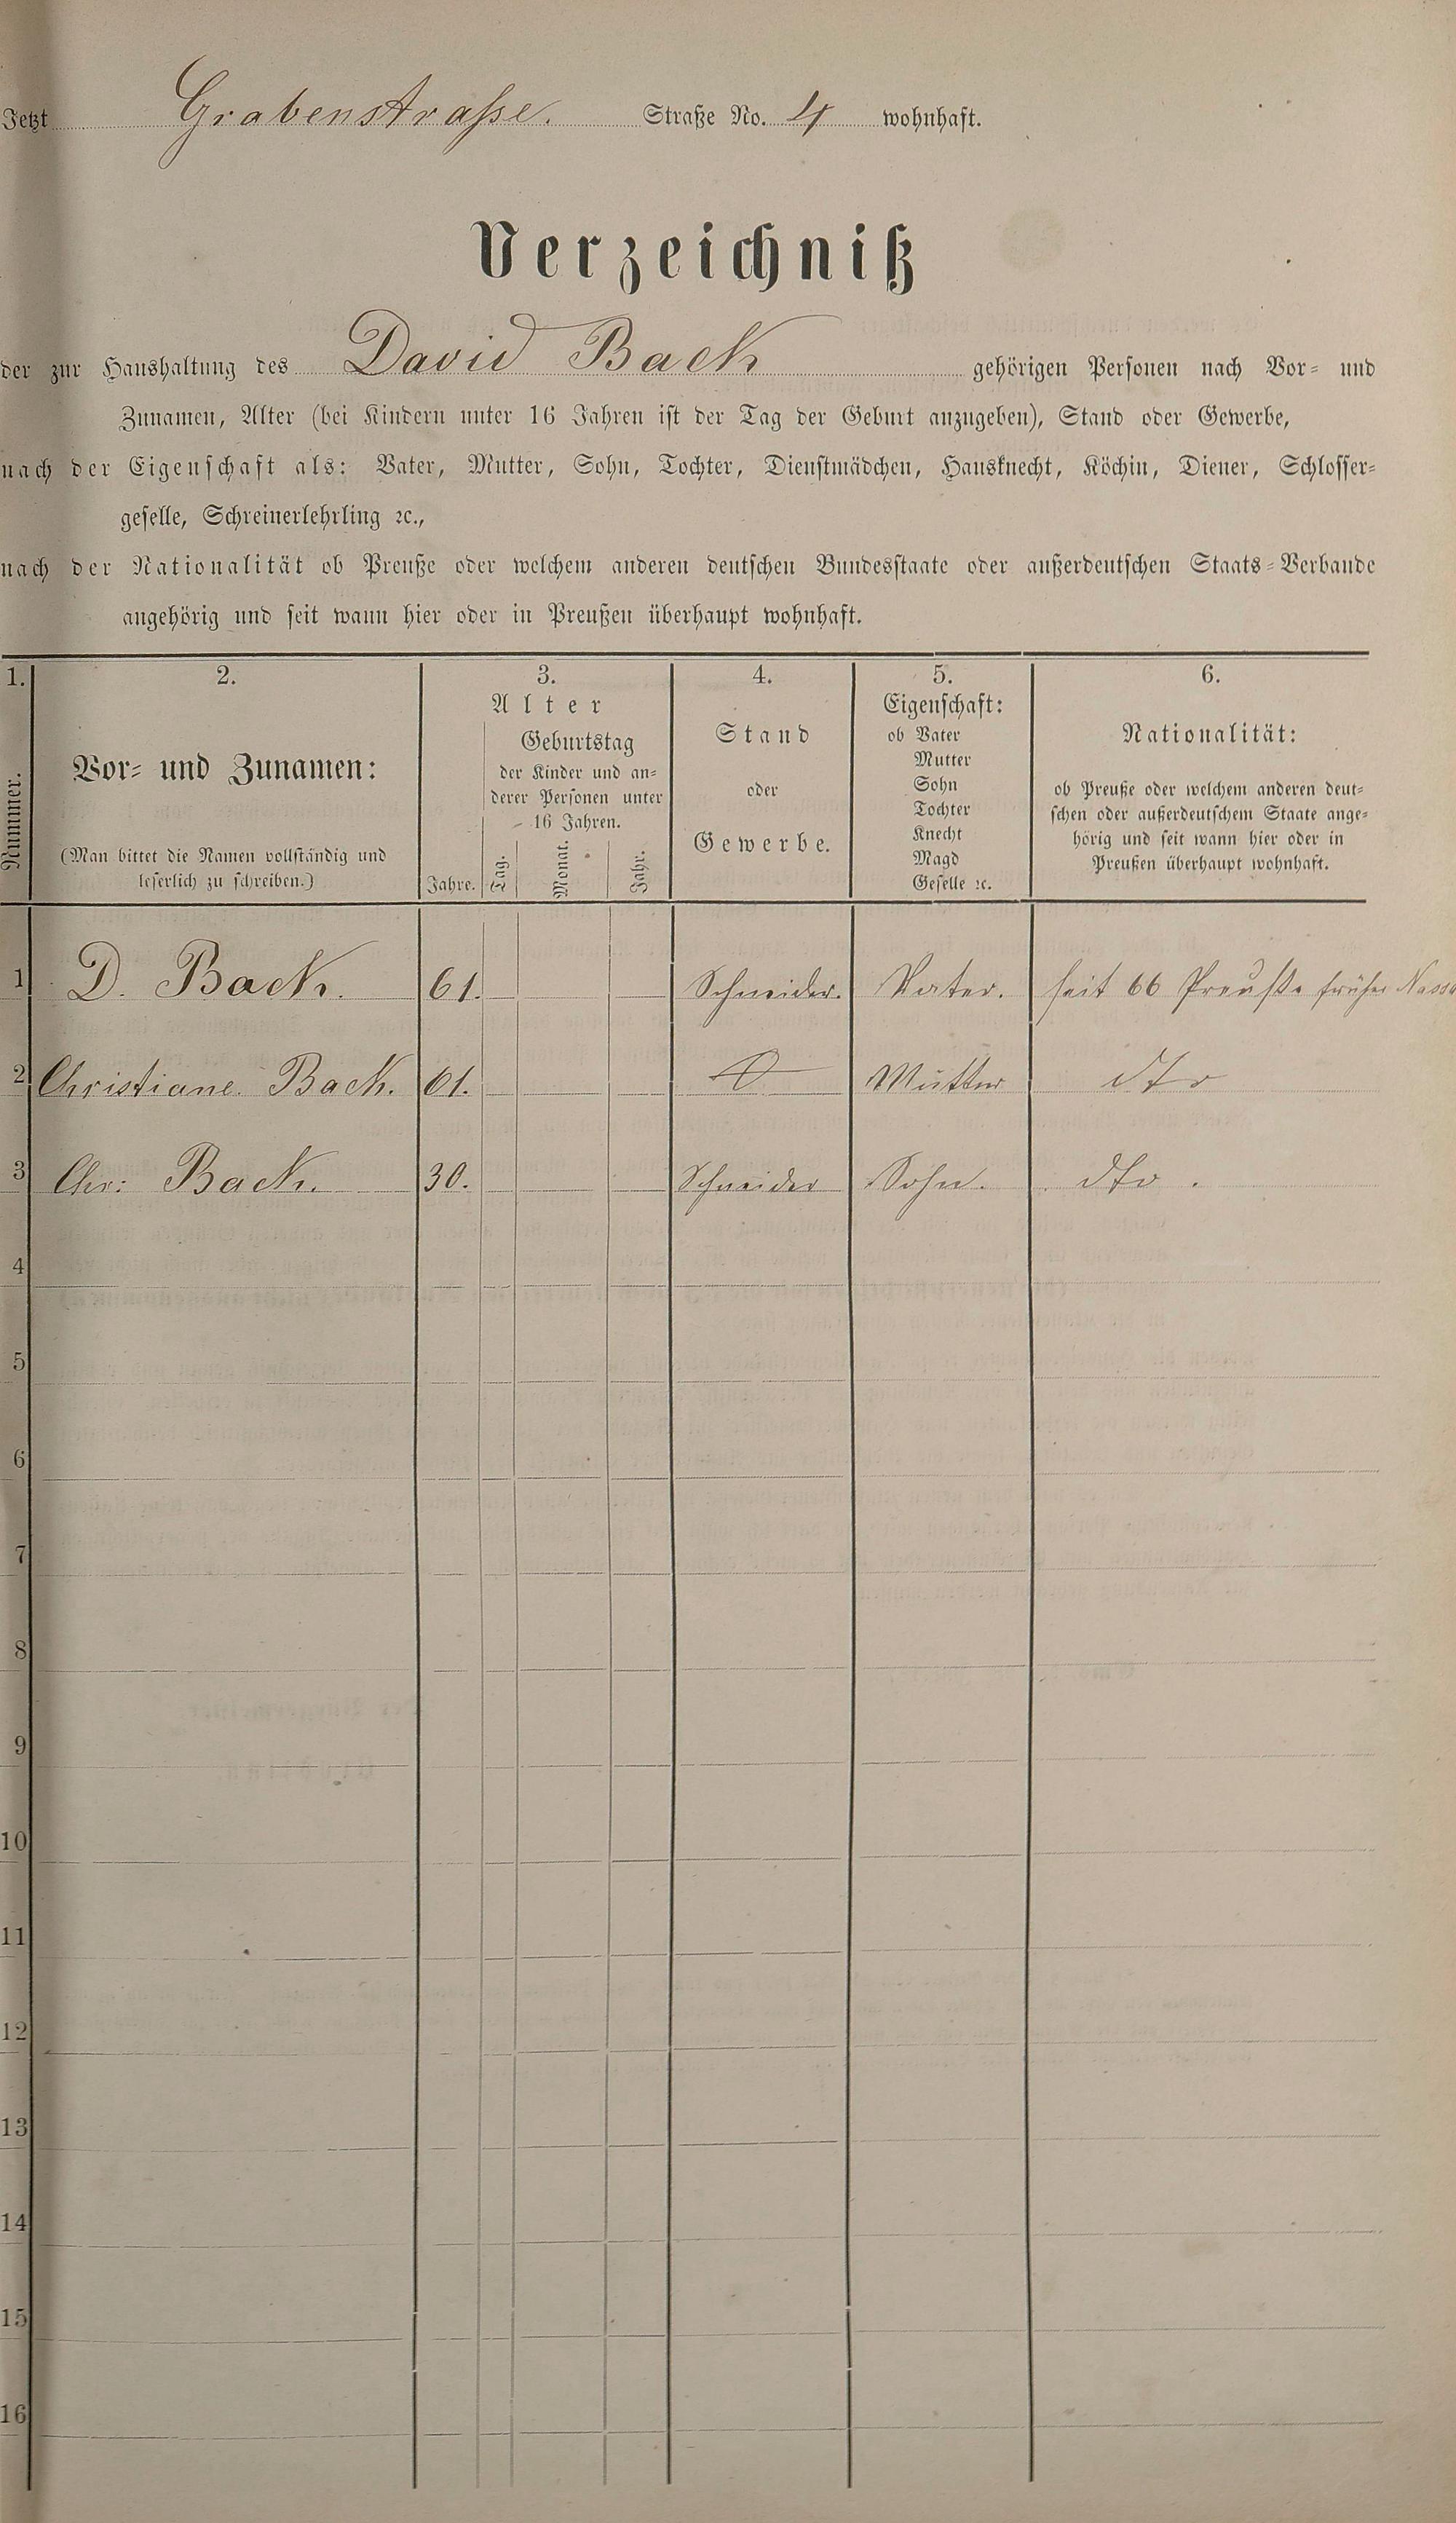 Jetzt Grabenstraße. Straße No. 4 wohnhaft.
Verzeichniß
der zur Haushaltung des David Back gehörigen Personen nach Vor- und
Zunamen, Alter (bei Kindern unter 16 Jahren ist der Tag der Geburt anzugeben), Stand oder Gewerbe,
nach der Eigenschaft als: Vater, Mutter, Sohn, Tochter, Dienstmädchen, Hausknecht, Köchin, Diener, Schlosser-
geselle, Schreinerlehrling ꝛc.,
nach der Nationalität ob Preuße oder welchem anderen deutschen Bundesstaate oder außerdeutschen Staats-Verbande
angehörig und seit wann hier oder in Preußen überhaupt wohnhaft.
1. 2. 3. 4. 5. 6.
Nummer.
Vor- und Zunamen:
(Man bittet die Namen vollständig und
leserlich zu schreiben.)
Alter
Jahre.
Geburtstag
der Kinder und an-
derer Personen unter
16 Jahren.
Tag. Monat. Jahr.
Stand
oder
Gewerbe.
Eigenschaft:
ob Vater
Mutter
Sohn
Tochter
Knecht
Magd
Geselle ꝛc.
Nationalität:
ob Preuße oder welchem anderen deut-
schen oder außerdeutschem Staate ange-
hörig und seit wann hier oder in
Preußen überhaupt wohnhaft.
1 D. Back. 61. Schneider. Vater. seit 66 Preuße früher Nassa
2 Christiane Back. 61. Mutter dto
3 Chr: Back. 30. Schneider Sohn. dto.
4
5
6
7
8
9
10
11
12
13
14
15
16